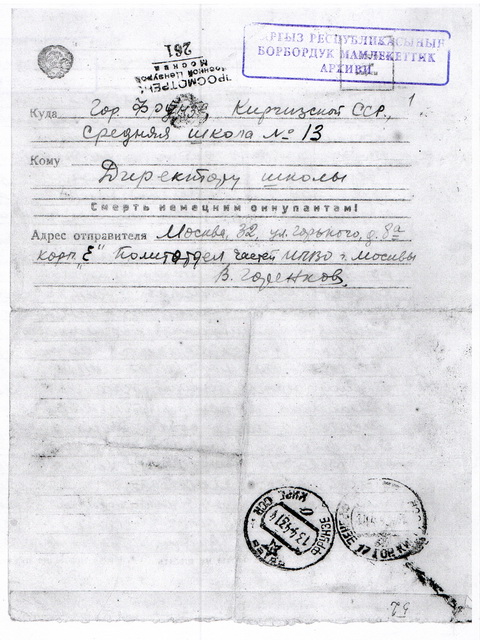 КЫРГЫЗ РЕСПУБЛИКАСЫНЫН
БОРБОРДУК МАМЛЕКЕТТИК
АРХИВИ
ПРОСМОТРЕНО
Военной Цензурой
Москва
261
1
Куда Гор. Фрунзе Киргизской ССР,
Средняя школа № 13
Кому
Директору школы
Смерть немецким оккупантам!
Адрес отправителя Москва, 32, ул. Горького, д. 8а
корп. „Е" Политотдел частей МПВО г. Москвы
В. Горенков
ФРУНЗЕ КИРГ. ССР
13 4 43 14
52